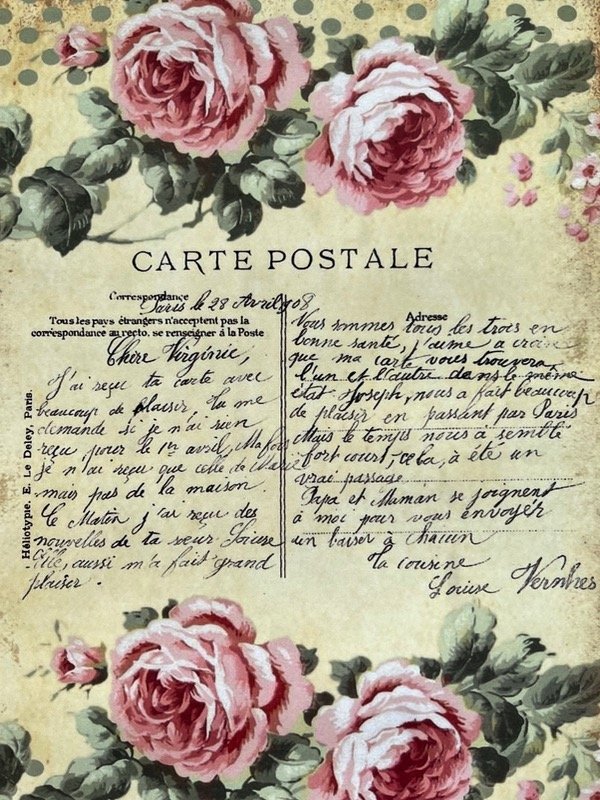 CARTE POSTALE
Correspondance
Paris le 28 Avril 1908
Tous les pays étrangers n'acceptent pas la
correspondance au recto. se renseigner à la Poste
Chère Virginie,
J'ai reçu ta carte avec
beaucoup de plaisir, Tu me
demande si je n'ai rien
reçu, pour le 1er avril, Ma fois
je n'ai reçu que celle de Marie
mais pas de la maison.
Ce Matin j'ai reçu des
nouvelles de ta sœur Louise
elle, aussi m'a fait grand
plaisir.
Héliotypie. E. Le Deley, Paris.
Adresse
Nous smmes tous les trois en
bonne santé, j'aime a croire
que ma carte vous trouvera
l'un et l'autre dans le même
état Joseph, nous a fait beaucoup
de plaisir en passant par Paris
Mais le temps nous à semblé
fort court, cela, à été un
vrai passage
Papa et Maman se joignent
à moi pour vous envoyér
un baiser à chacun
Ta cousine
Louise Vernhes